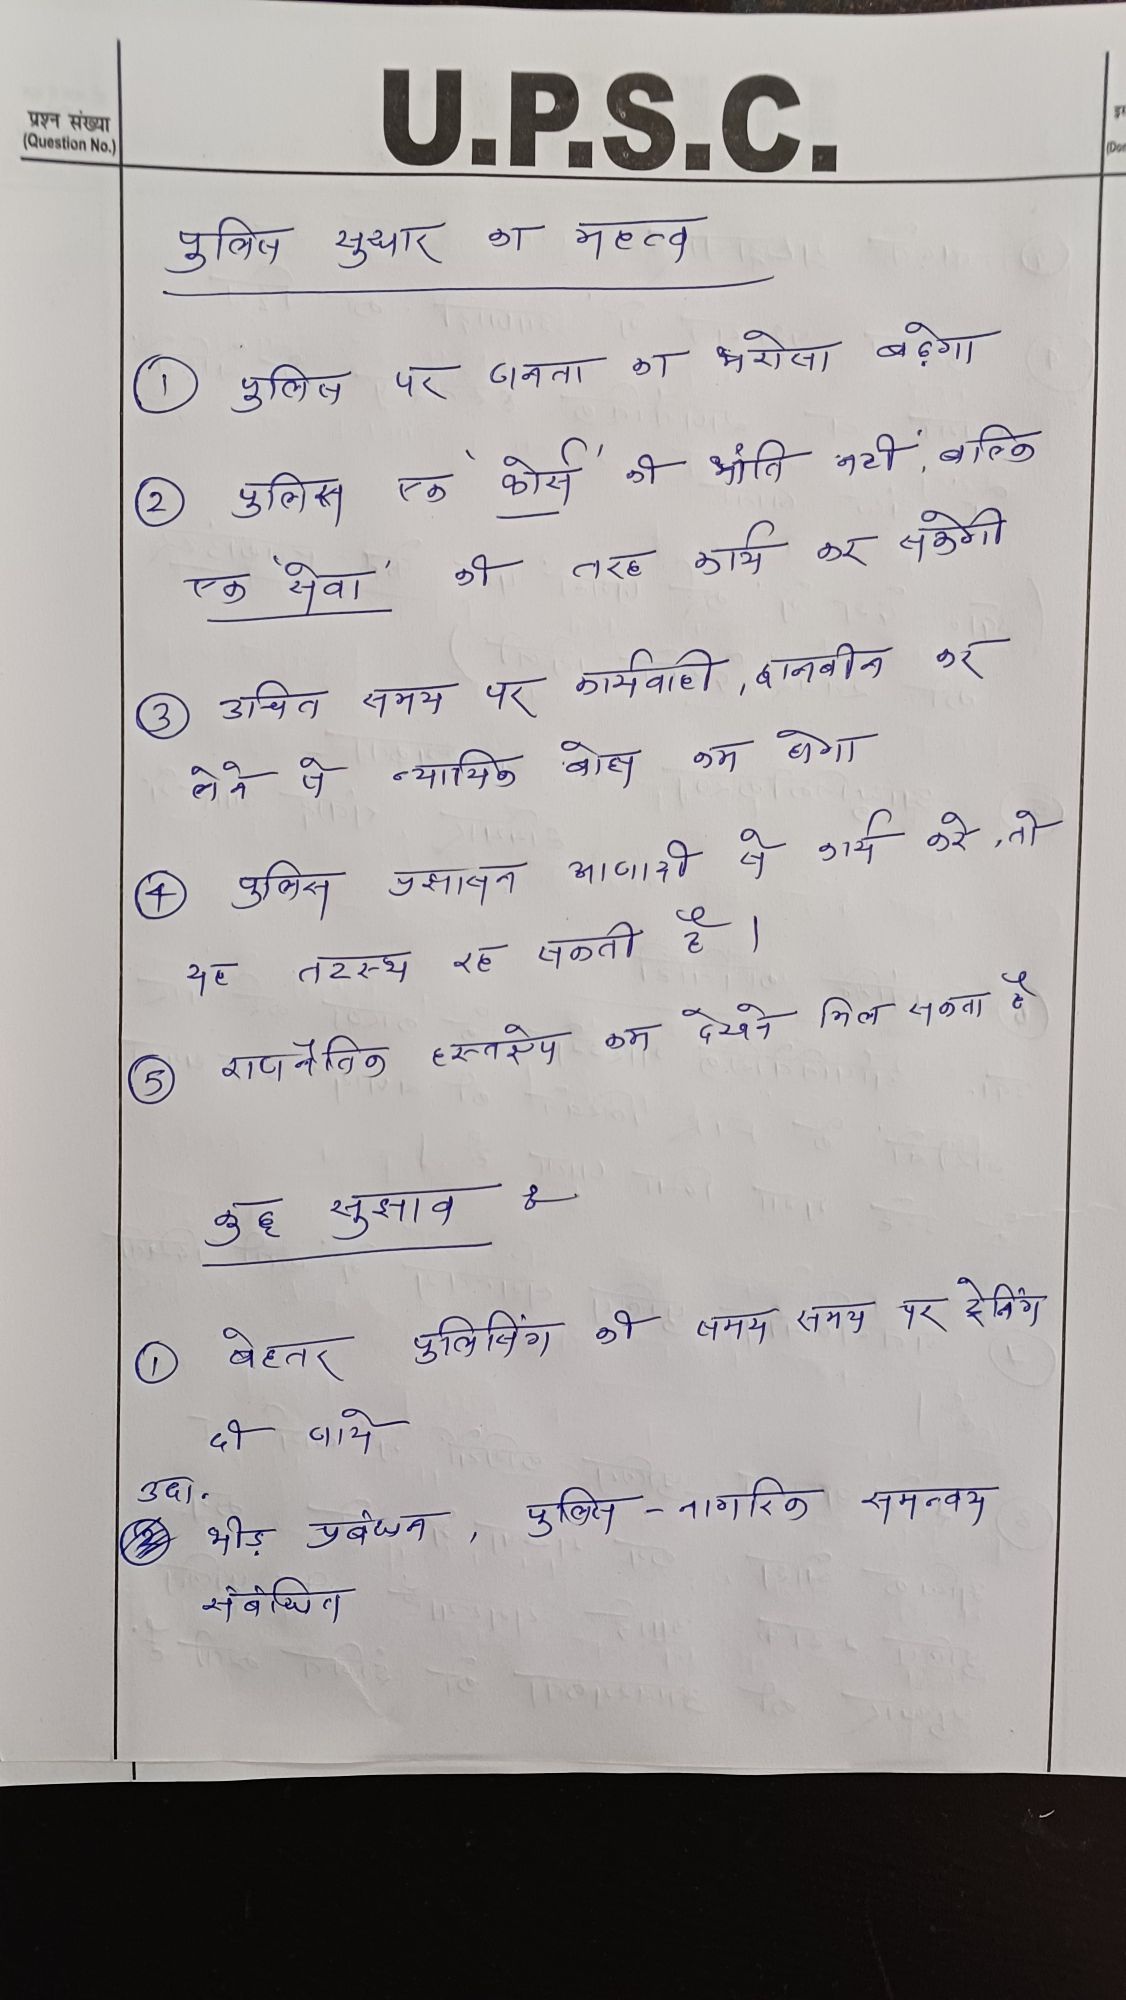 प्रश्न संख्या
(Question No.)
U.P.S.C.
(Don
पुलिस सुधार का महत्व
① पुलिस पर जनता का भरोसा बढ़ेगा
② पुलिस एक 'फोर्स' की भांति नहीं, बल्कि
एक 'सेवा' की तरह कार्य कर सकेगी
③ उचित समय पर कार्यवाही, छानबीन कर
लेने से न्यायिक बोझ कम होगा
④ पुलिस प्रशासन आजादी से कार्य करे, तो
यह तटस्थ रह सकती है।
⑤ राजनैतिक हस्तक्षेप कम देखने मिल सकता है
कुछ सुझाव :-
① बेहतर पुलिसिंग की समय समय पर ट्रेनिंग
दी जाये
उदा.
भीड़ प्रबंधन, पुलिस-नागरिक समन्वय
संबंधित